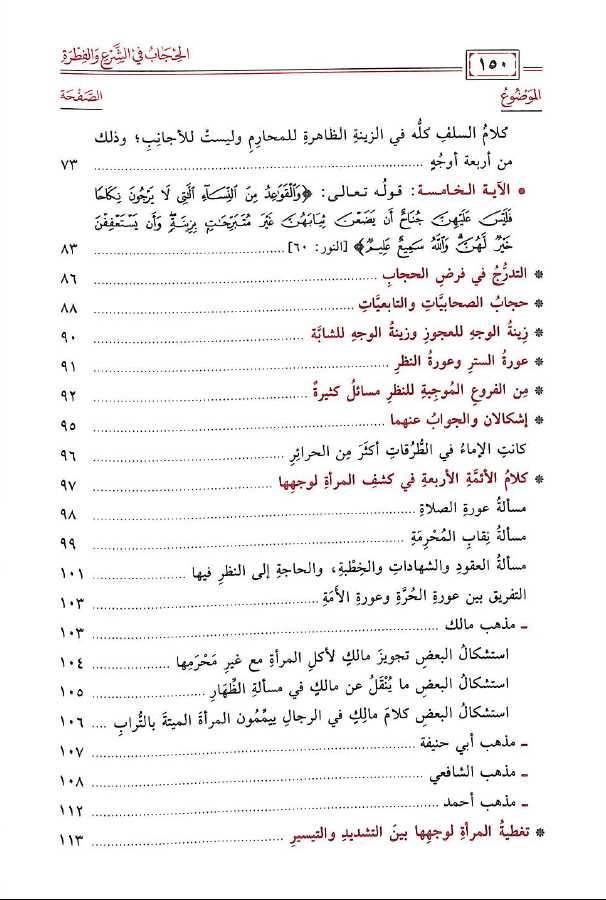 ١٥٠ الحِجَابُ في الشَّرْعِ والفِطْرَة
المَوْضُوعُ الصَّفْحَة
كلامُ السلفِ كلُّه في الزينةِ الظاهرةِ للمحارِمِ وليستْ للأجانبِ؛ وذلك
من أربعةِ أوجُهٍ ٧٣
• الآية الخامسة: قولُه تعالى: ﴿وَٱلْقَوَٰعِدُ مِنَ ٱلنِّسَآءِ ٱلَّٰتِى لَا يَرْجُونَ نِكَاحًا
فَلَيْسَ عَلَيْهِنَّ جُنَاحٌ أَن يَضَعْنَ ثِيَابَهُنَّ غَيْرَ مُتَبَرِّجَٰتٍۭ بِزِينَةٍ ۖ وَأَن يَسْتَعْفِفْنَ
خَيْرٌ لَّهُنَّ ۗ وَٱللَّهُ سَمِيعٌ عَلِيمٌ﴾ [النور: ٦٠] ٨٣
* التدرُّجُ في فرضِ الحجابِ ٨٦
* حجابُ الصحابيَّاتِ والتابعيَّاتِ ٨٨
* زينةُ الوجهِ للعجوزِ وزينةُ الوجهِ للشابَّة ٩٠
* عورةُ السترِ وعورةُ النظرِ ٩١
* مِن الفروعِ المُوجِبةِ للنظرِ مسائلُ كثيرةٌ ٩٢
* إشكالان والجوابُ عنهما ٩٥
كانتِ الإماءُ في الطُّرُقاتِ أكثَرَ مِن الحرائرِ ٩٦
* كلامُ الأئمَّةِ الأربعةِ في كشفِ المرأةِ لوجهِها ٩٧
مسألةُ عورةِ الصلاةِ ٩٨
مسألةُ نِقابِ المُحْرِمَةِ ٩٩
مسألةُ العقودِ والشهاداتِ والخِطْبةِ، والحاجةِ إلى النظرِ فيها ١٠١
التفريق بين عورةِ الحُرَّةِ وعورةِ الأَمَةِ ١٠٣
ـ مذهب مالك ١٠٣
استشكالُ البعضِ تجويزَ مالكٍ لأكلِ المرأةِ مع غيرِ مَحْرَمِها ١٠٤
استشكالُ البعضِ ما يُنْقَلُ عن مالكٍ في مسألةِ الظِّهَارِ ١٠٥
استشكالُ البعضِ كلامَ مالِكٍ في الرجالِ ييمِّمُون المرأةَ الميتةَ بالتُّرابِ ١٠٦
ـ مذهب أبي حنيفة ١٠٧
ـ مذهب الشافعي ١٠٨
ـ مذهب أحمد ١١٢
* تغطيةُ المرأةِ لوجهِها بينَ التشديدِ والتيسيرِ ١١٣